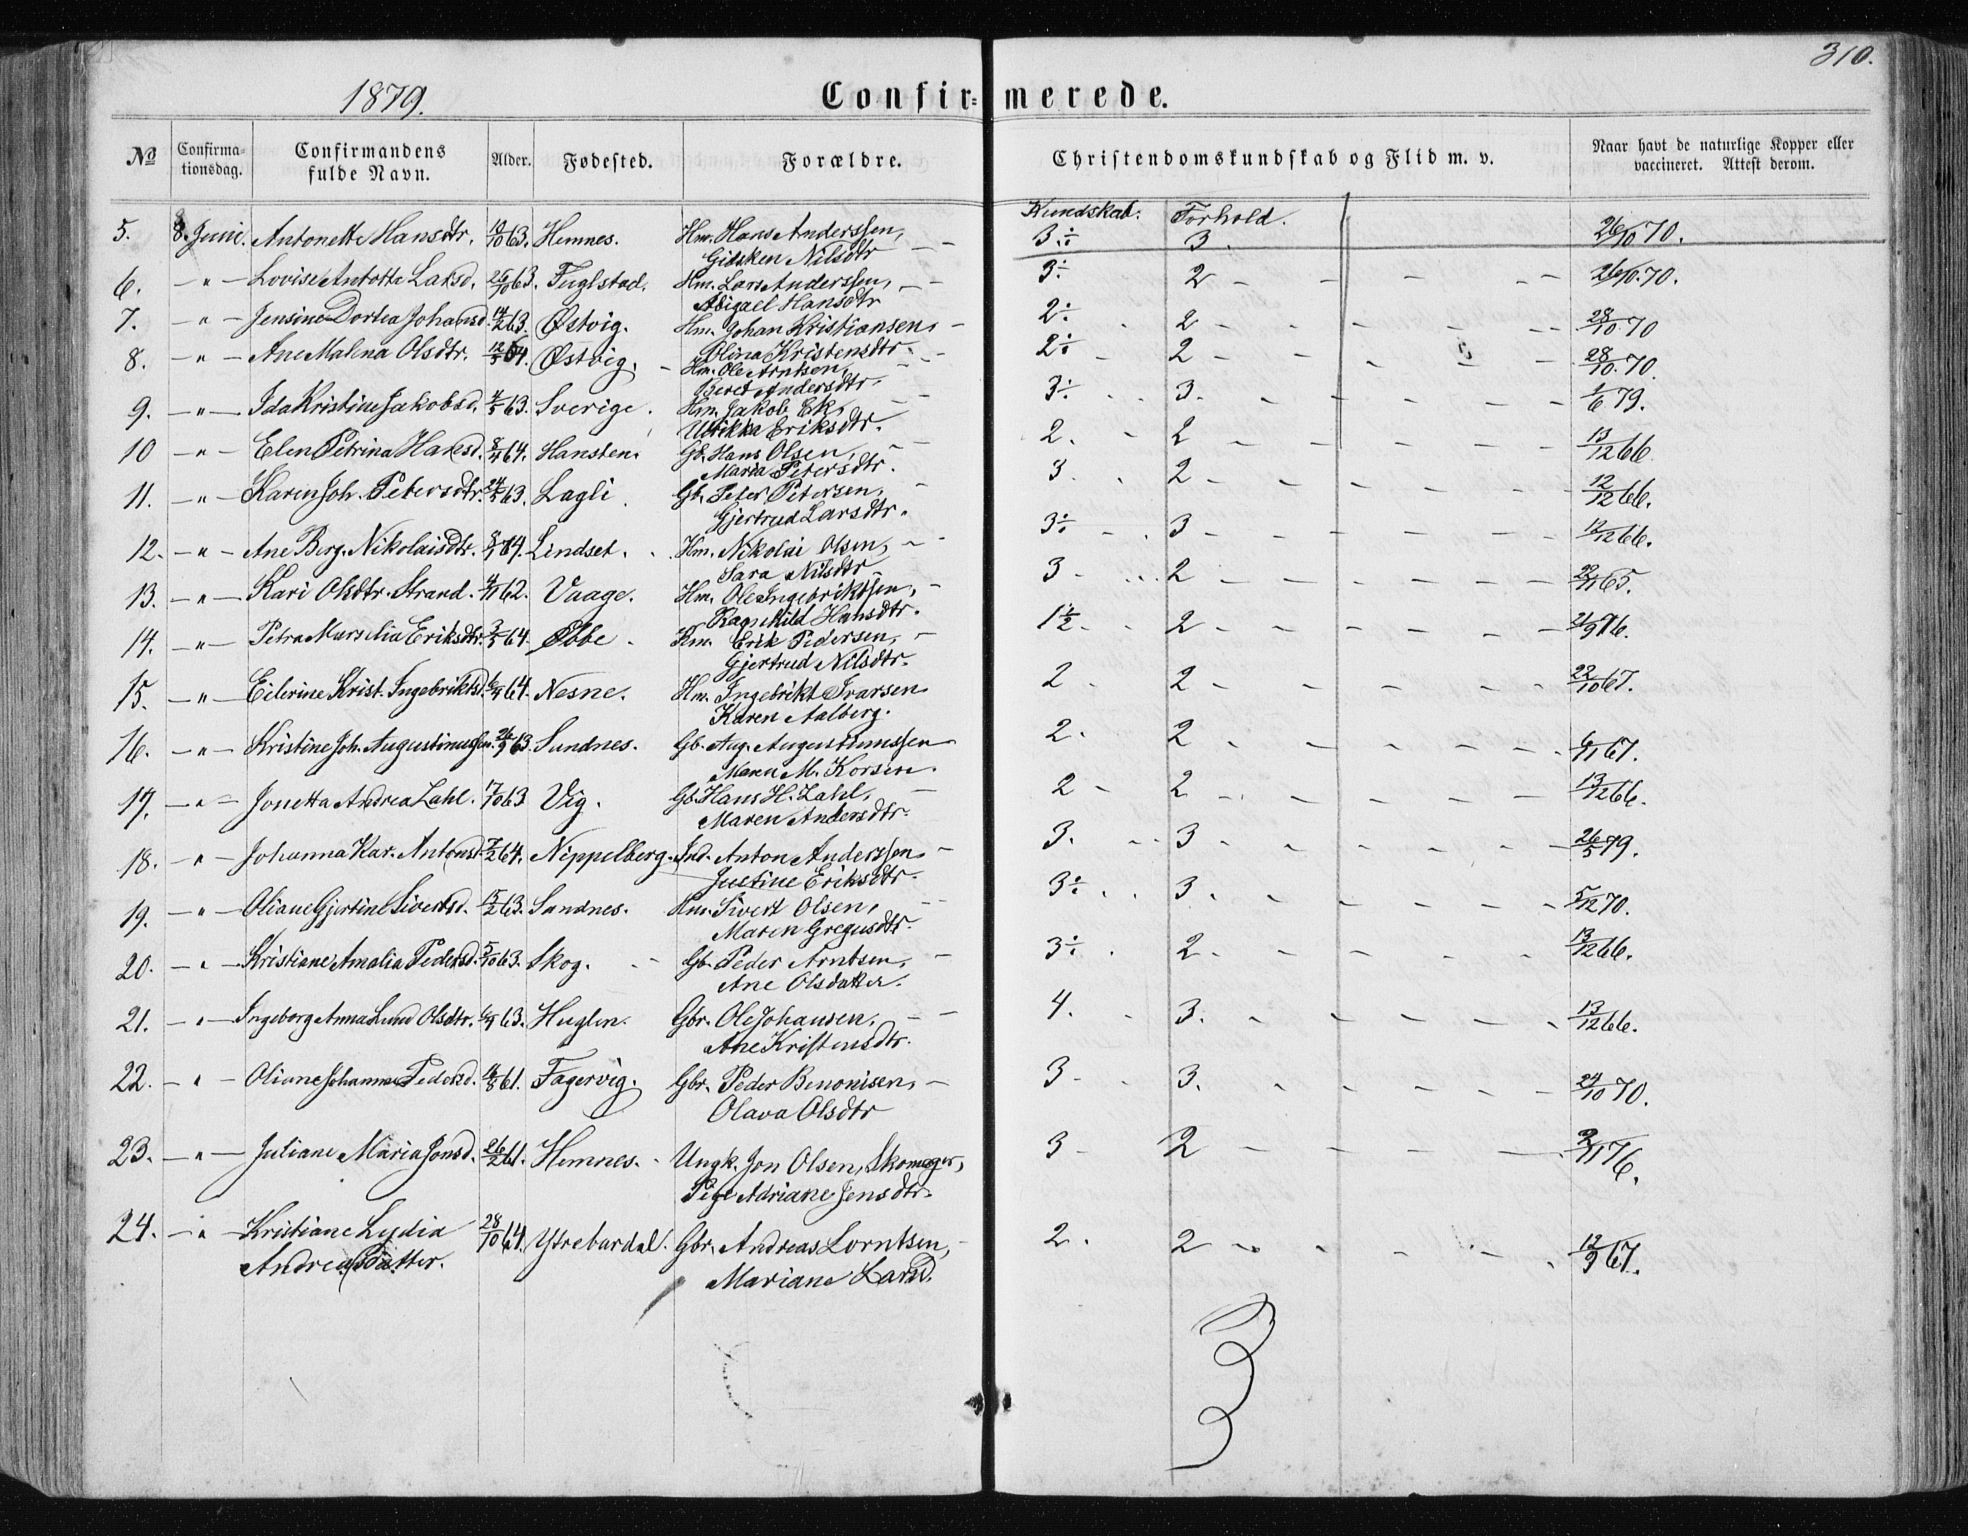 310.
1879. Confir= merede.
№ Confirma=tionsdag. Confirmandens fulde Navn. Alder. Fødested. Forældre. Christendomskundskab og Flid m. v. Naar havt de naturlige Kopper eller vaccineret. Attest derom.
Kundskab. Forhold.
5. 8. Juni. Antonette Hansdtr. 10/10 63. Hemnes. Hm. Hans Anderssen, 3.÷ 3. 26/10 70.
Gidsken Nilsdtr
6. - " - Lovise Antotte Larsd. 63. Fuglstad. Hm. Lars Anderssen, 3÷ 2 26/10.70.
Abigael Hansdtr
7. - " - Jensine Dortea Johansd. 14/2 63. Østvig. Hm. Johan Kristiansen, 2÷ 2 28/10 70
Olina Kristensdtr.
8. - " - Ane Malena Olsdtr. 12/5 64. Østvig. Hm. Ole Arntsen, 2÷ 2 28/10.70.
Beret Andersdtr.
9. - " - Ida Kristine Jakobsd. 63. Sverige. Hm. Jakob Ek, 3÷ 3. 1/6 79.
Ulrikka Eriksdtr.
10 - " - Elen Petrina Hansd. 8/4 64. Hansten. Gb. Hans Olsen, 2. 2 13/12 66.
Maria Petersdtr.
11. - " - Karen Joh. Petersdtr. 24/5 63. Lagli. Gb. Peter Petersen, 3 2 12/12 66.
Gjertrud Larsdtr.
12. - " - Ane Berg. Nikolaisdtr. 64. Lindset. Hm. Nikolai Olsen, 3÷ 3 12/12 66.
Sara Nilsdtr
13. - " - Kari Olsdtr. Strand. 4/11 62. Vaage. Hm. Ole Ingebriktsen, 3 2 65.
Ragnhild Hansdtr.
14. - " - Petra Marselia Eriksdtr. 3/5 64. Øbbe. Hm. Erik Pedersen, 1½ 2 2/9 76.
Gjertrud Nilsdtr.
15. - " - Eilerine Krist. Ingebriktsd. 6/4 64. Nesne. Hm. Ingebrikt Ivarsen 2 2 22/10 67.
Karen Aalberg.
16. - " - Kristine Joh. Augustinussen. 26/9 63. Sundnes. Gb. Aug. Augustinussen 2. 2 6/11 67.
Maren M. Korsen.
17. - " - Jonetta Andrea Zahl. 7/10 63 Vig. Gb. Hans H. Zahl, 2 2 13/12 66.
Maren Andersdtr.
18. - " - Johanna Kar. Antonsd. 7/2 64. Nippelberg. Ind. Anton Anderssen 3. 3 26/5 79.
Justine Eriksdtr.
19. - " - Oliane Gjertine Sivertsd. 15/2 63. Sandnes. Hm. Sivert Olsen, 3÷ 3. 5/12 70.
Maren Gregusdtr.
20. - " - Kristiane Amalia Pedersd. 5/10 63. Skog. Gb. Peder Arntsen, 3÷ 2 13/12 66.
Ane Olsdatter.
21. - " - Ingeborg Anna Lund Olsdtr. 6/9 63. Huglen. Gbr. Ole Johansen, 4. 3. 13/12 66.
Ane Kristensdtr.
22. - " - Oliane Johanna Pedersd. 61. Fagervig. Gbr. Peder Benonisen, 3 3. 24/10 70.
Olava Olsdtr
23. - " - Juliane Maria Jonsd. 26/2 61. Hemnes. Ungk. Jon Olsen, Skomager, 3 2 2/11 76.
Pige Adriane Jensdtr.
24. - " - Kristiane Lydia 28/10 64. Ytrebardal. Gbr. Andreas Lorntsen, 2. 2 12/9 67.
Andreasdatter. Mariane Larsd.